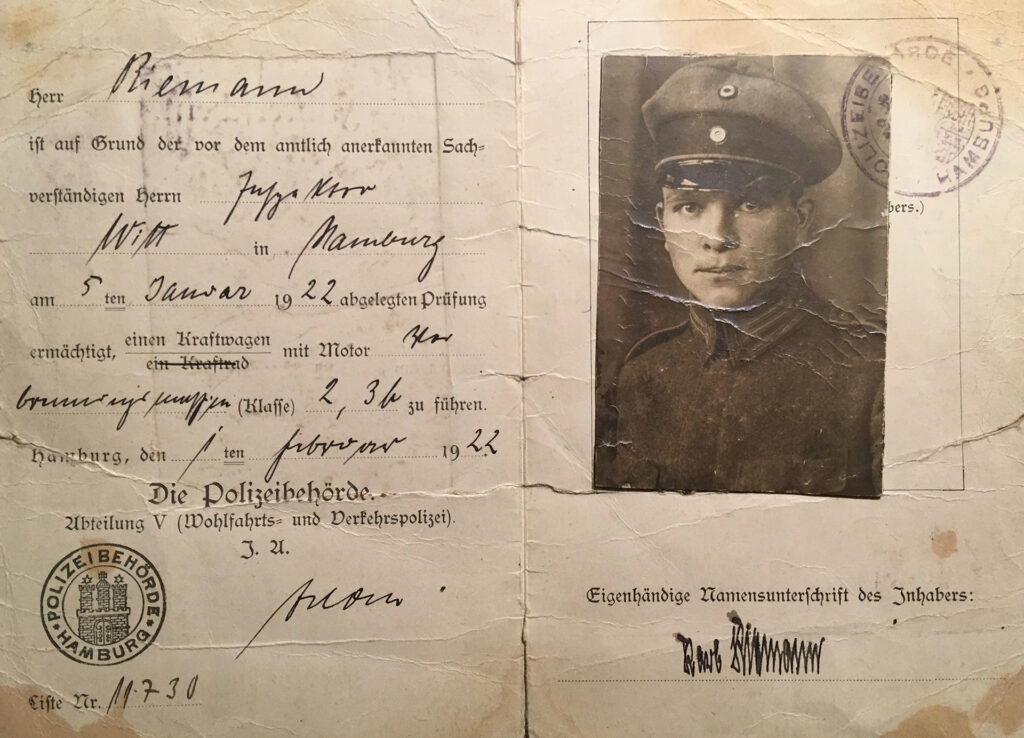 Herr Riemann
ist auf Grund der vor dem amtlich anerkannten Sach=
verständigen Herrn Inspektor
Witt in Hamburg
am 5 ten Januar 1922 abgelegten Prüfung
ermächtigt, einen Kraftwagen mit Motor Ver
ein Kraftrad
(Klasse) 2, 3b zu führen.
Hamburg, den 1 ten Februar 1922
Die Polizeibehörde.
Abteilung V (Wohlfahrts= und Verkehrspolizei).
J. A.
POLIZEIBEHÖRDE
HAMBURG
Liste Nr. 11730
POLIZEIBEHÖRDE
HAMBURG
bers.)
Eigenhändige Namensunterschrift des Inhabers:
Riemann